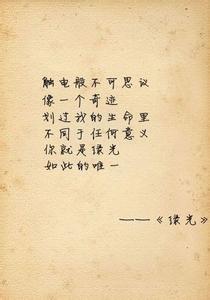 触电般不可思议
像一个奇迹
划过我的生命里
不同于任何意义
你就是绿光
如此的唯一
——《绿光》